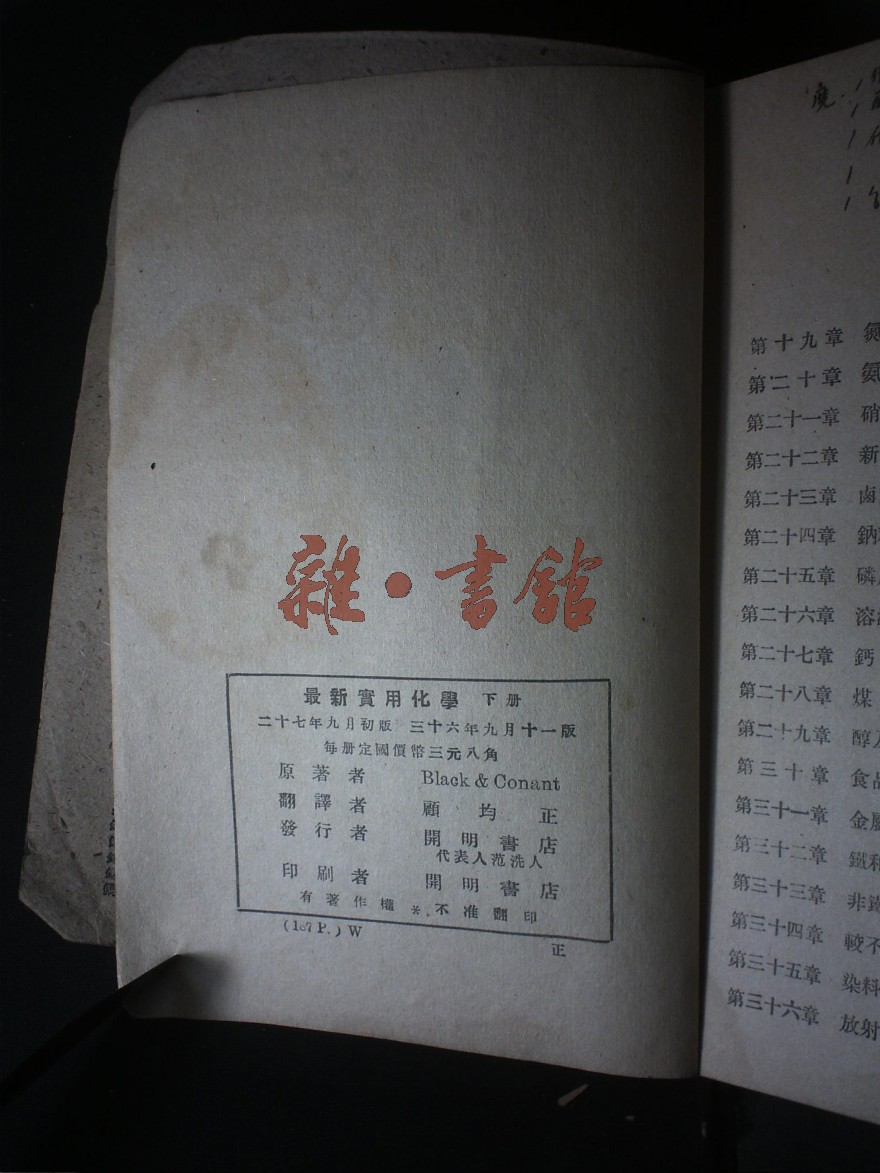 雜·書館
最新實用化學 下册
二十七年九月初版 三十六年九月十一版
每册定國價幣三元八角
原著者 Black & Conant
翻譯者 顧均正
發行者 開明書店
代表人范洗人
印刷者 開明書店
有著作權 *. 不准翻印
(1c7 P.) W
正
第十九章 氮
第二十章 氨
第二十一章 硝
第二十二章 新
第二十三章 鹵
第二十四章 鈉
第二十五章 磷
第二十六章 溶
第二十七章 鈣
第二十八章 煤
第二十九章 醇
第三十章 食品
第三十一章 金屬
第三十二章 鐵和
第三十三章 非鐵
第三十四章 較不
第三十五章 染料
第三十六章 放射